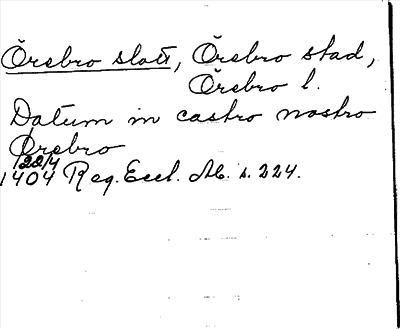 Örebro slott, Örebro stad,
Örebro l.
Datum in castro nostro
Örebro
22/4
1404 Reg. Eccl. s. 224.